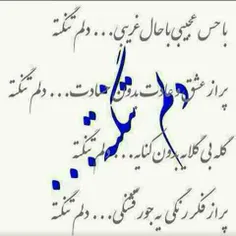 با حس عجیبی با حال غریبی... دلم تنگته
پر از عشق و عادت بدون حسادت... دلم تنگته
گله بی گلایه بدون کنایه... دلم تنگته
پر از فکر رنگی یه جور قشنگی... دلم تنگته
دلم تنگته...